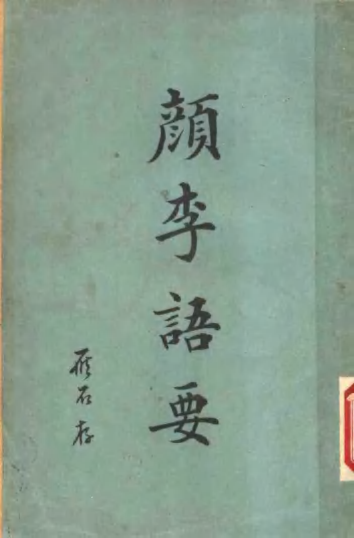 顏李語要
石存